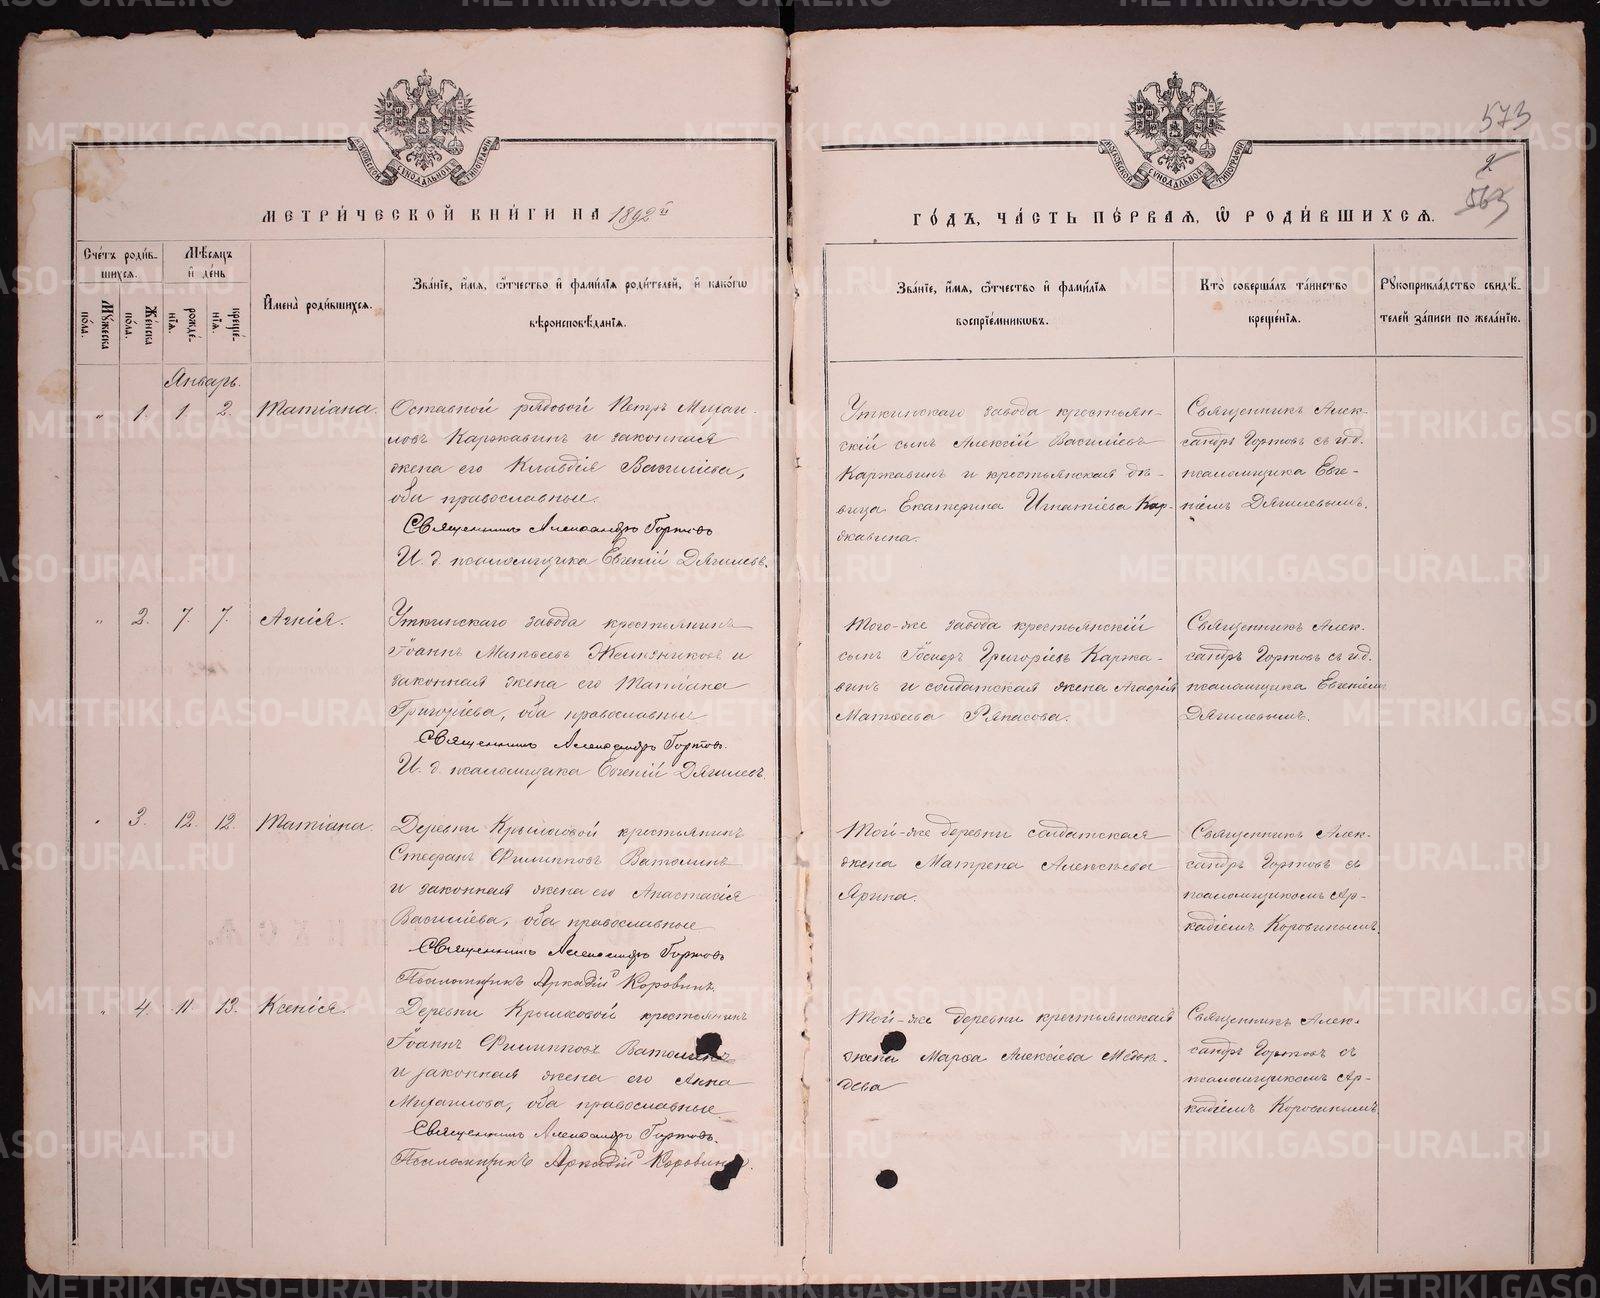 573
563
МОСКОВСКОЙ СѴНОДАЛЬНОЙ ТИПОГРАФІИ
МОСКОВСКОЙ СѴНОДАЛЬНОЙ ТИПОГРАФІИ
МЕТРИ́ЧЕСКОЙ КНИ́ГИ НА 1892й
ГО́ДЪ, ЧА́СТЬ ПЕ́РВАЯ, Ѡ РОДИ́ВШИХСЯ.
Сче́тъ роди́в-
шихся.
Мѣсяцъ
и҆ де́нь
Мꙋ́жеска
по́ла.
Же́нска
по́ла.
рожде́-
нїя.
креще́-
нїя.
И҆мена̀ роди́вшихся.
Зва́нїе, и҆́мя, ѻ҆́тчество и҆ фами́лїя роди́телей, и҆ како́гѡ
вѣроисповѣ́данїя.
Зва́нїе, и҆́мя, ѻ҆́тчество и҆ фами́лїя
воспрїе́мниковъ.
Кто̀ соверша́лъ та́инство
креще́нїя.
Рꙋкоприкла́дство свидѣ́-
телей за́писи по жела́нїю.
Январь.
" 1. 1. 2. Татіана.
Отставной рядовой Петръ Михаи-
ловъ Каржавинъ и законная
жена его Клавдія Василіева,
оба православные.
Священникъ Александръ Гортовъ
И. д. псаломщика Евгеній Дягилевъ.
Уткинскаго завода крестьян-
скій сынъ Алексій Василіевъ
Каржавинъ и крестьянская дѣ-
вица Екатерина Игнатіева Кар-
жавина.
Священникъ Алек-
сандръ Гортовъ съ и.д.
псаломщика Евге-
ніемъ Дягилевымъ.
" 2. 7. 7. Агнія.
Уткинскаго завода крестьянинъ
Іоаннъ Матѳеевъ Желѣзниковъ и
законная жена его Татіана
Григоріева, оба православные
Священникъ Александръ Гортовъ.
И. д. псаломщика Евгеній Дягилевъ
Того-же завода крестьянскій
сынъ Іосифъ Григоріевъ Каржа-
винъ и солдатская жена Агафія
Матѳеева Ряпасова.
Священникъ Алек-
сандръ Гортовъ съ и.д.
псаломщика Евгеніемъ
Дягилевымъ.
" 3. 12. 12. Татіана.
Деревни Крыласовой крестьянинъ
Стефанъ Филипповъ Ватолинъ
и законная жена его Анастасія
Василіева, оба православные
Священникъ Александръ Гортовъ
Псаломщикъ Аркадій Коровинъ.
Той-же деревни солдатская
жена Матрена Алексѣева
Ярина.
Священникъ Алек-
сандръ Гортовъ съ
псаломщикомъ Ар-
кадіемъ Коровинымъ.
" 4. 11. 13. Ксенія.
Деревни Крыласовой крестьянинъ
Іоаннъ Филипповъ Ватолинъ
и законная жена его Анна
Михаилова, оба православные.
Священникъ Александръ Гортовъ.
Псаломщикъ Аркадій Коровинъ.
Той-же деревни крестьянская
жена Марѳа Алексіева Медвѣ-
дева
Священникъ Алек-
сандръ Гортовъ съ
псаломщикомъ Ар-
кадіемъ Коровинымъ
METRIKI.GASO-URAL.RU